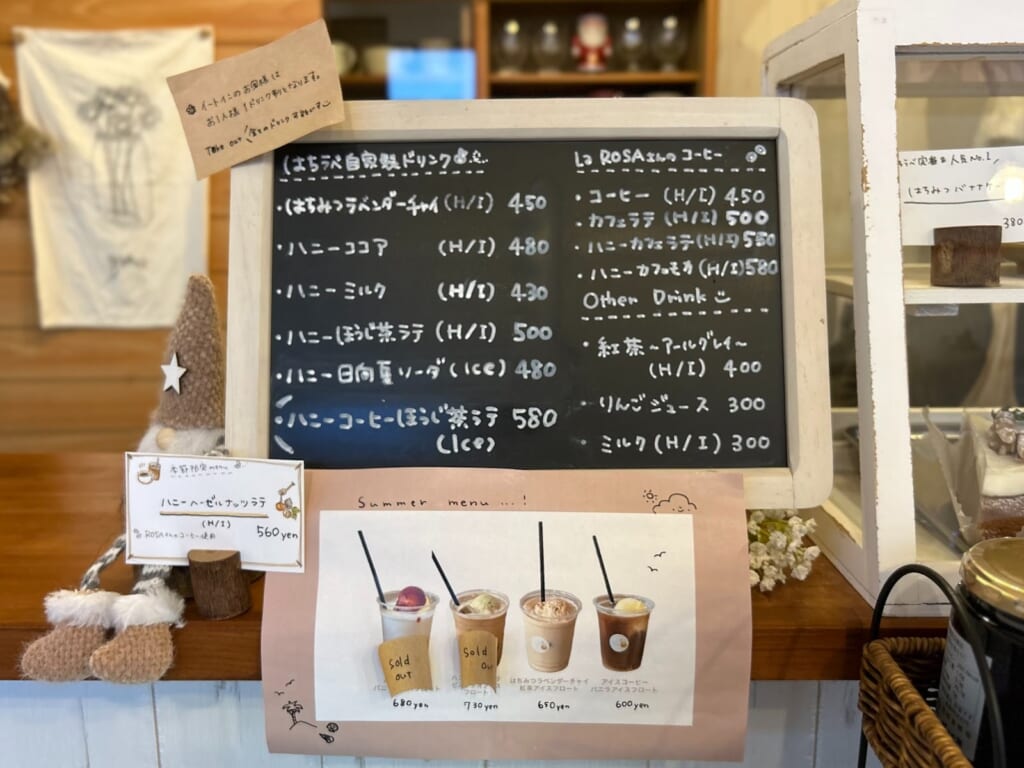 イートインのお客様は
お1人様 1ドリンク制となります。
Take out
はちラベ自家製ドリンク
・はちみつラベンダーチャイ(H/I) 450
・ハニーココア (H/I) 480
・ハニーミルク (H/I) 430
・ハニーほうじ茶ラテ (H/I) 500
・ハニー日向夏ソーダ(Ice) 480
・ハニーコーヒーほうじ茶ラテ 580
(Ice)
La ROSAさんのコーヒー
・コーヒー (H/I) 450
・カフェラテ (H/I) 500
・ハニーカフェラテ(H/I) 550
・ハニーカフェモカ(H/I)580
Other Drink
・紅茶〜アールグレイ〜
(H/I) 400
・りんごジュース 300
・ミルク(H/I) 300
人気No.1
はちみつバナナ
380
季節限定menu
ハニーヘーゼルナッツラテ
(H/I)
ROSAさんのコーヒー使用
560yen
Summer menu ...!
Sold
out
フロート
680yen
Sold
Out
フロート
730yen
はちみつラベンダーチャイ
紅茶アイスフロート
650yen
アイスコーヒー
バニラアイスフロート
600yen